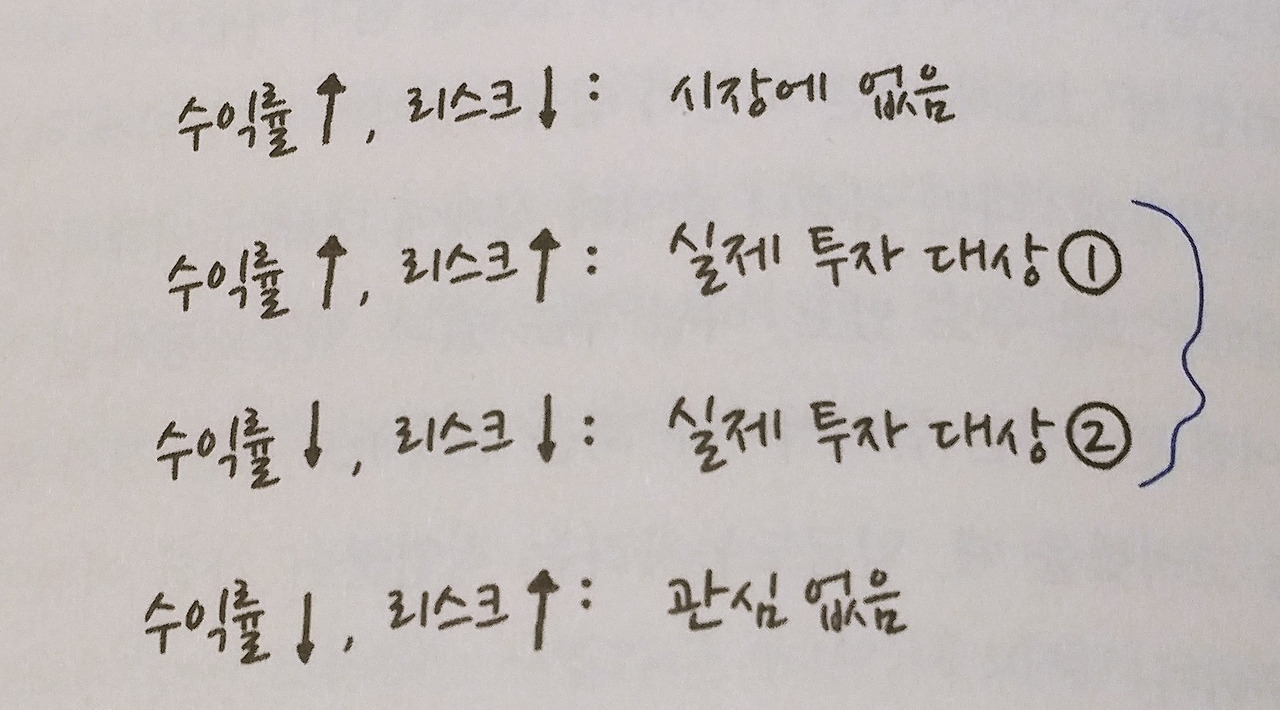 수익률↑, 리스크↓: 시장에 없음
수익률↑, 리스크↑: 실제 투자 대상①
수익률↓, 리스크↓: 실제 투자 대상②
수익률↓, 리스크↑: 관심 없음